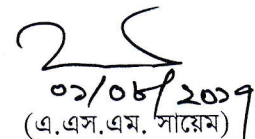 ০১/০৮/২০১৭
(এ.এস.এম. সায়েম)